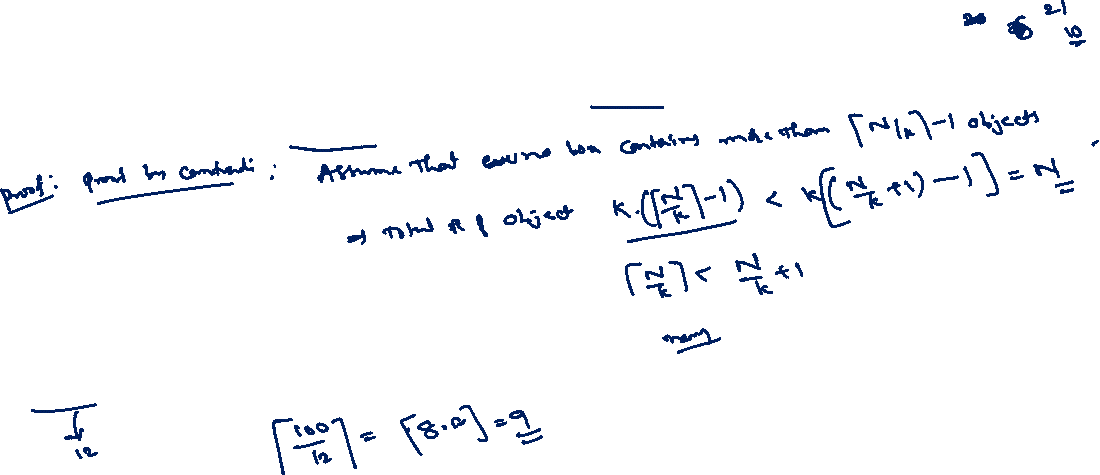 20 21
10
Proof: Proof by contradi: Assume that contains more than ⌈N/k⌉-1 objects
⇒ Total # of object k.(⌈N/k⌉-1) < k[(N/k +1)-1] = N
⌈N/k⌉ < N/k +1
12
⌈100/12⌉ = ⌈8. ⌉ = 9